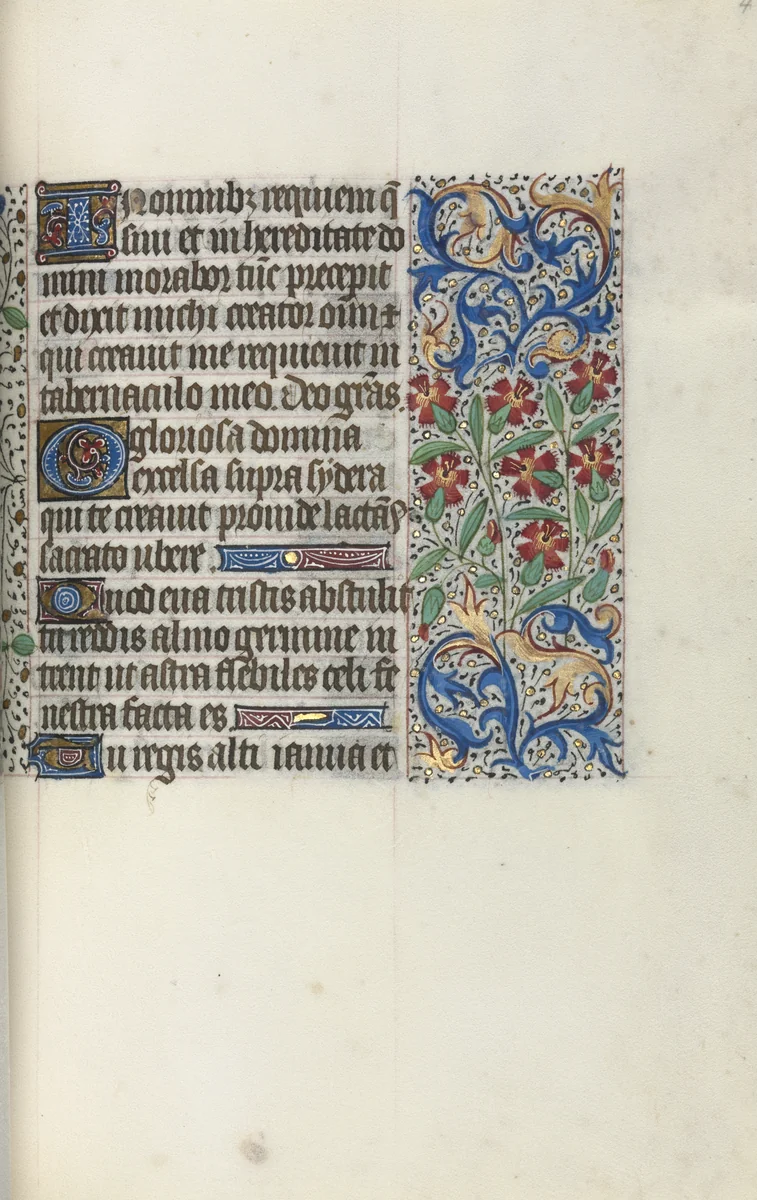 In omnibz requiem q̄
siui et in hereditate do
mini morabor tūc precepit
et dixit michi creator oīm ⁊
qui creauit me requieuit in
tabernaculo meo. Deo grās.
O gloriosa domina
excelsa supra sydera
qui te creauit prouide lactās
sacrato ubere
Quod eua tristis abstulit
tu reddis almo germine in
trent ut astra flebiles celi fe
nestra facta es
Tu regis alti ianua et